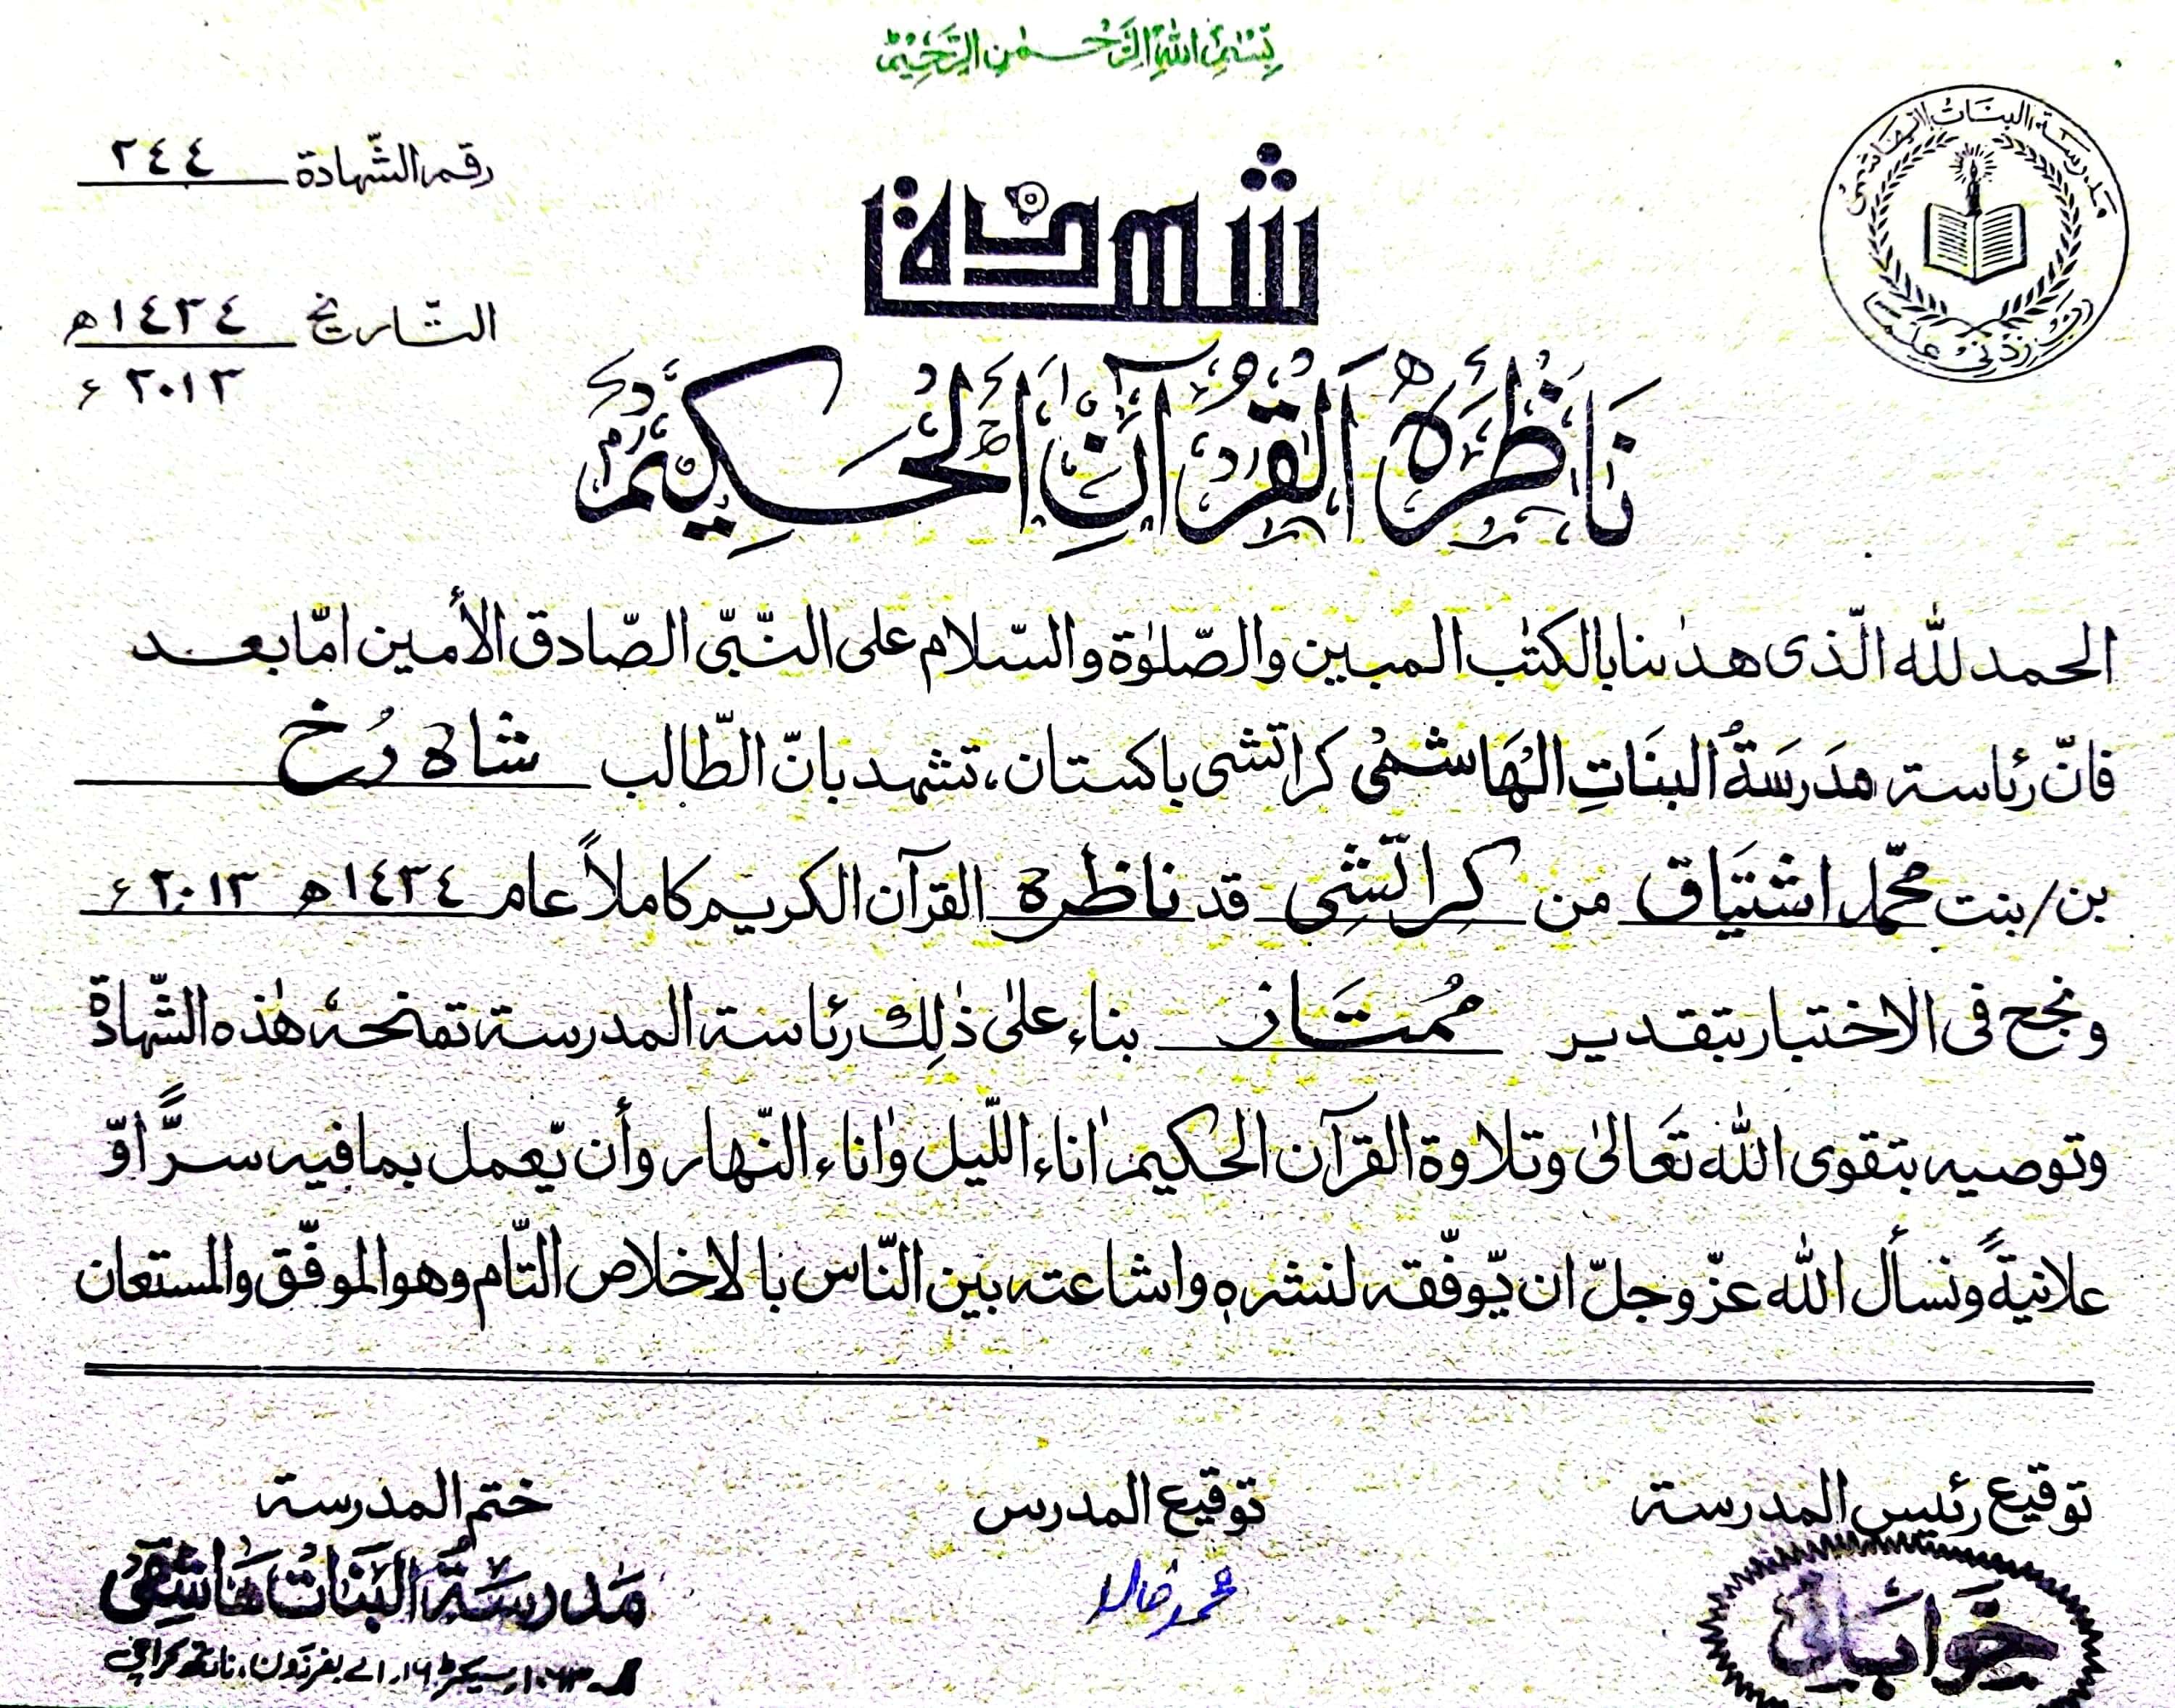 بِسْمِ اللهِ الرَّحْمٰنِ الرَّحِيْمِ
مدرسة البنات الهاشمي
رب زدني علما
رقم الشّهادة ٢٤٤
شهادة
التّاريخ ١٤٣٤ھ
٢٠١٣ء
نَاظِرَهُ الْقُرْآنِ الْحَكِيْمِ
الحمد للّٰه الّذى هدٰنا بالكتٰب المبين والصّلوٰة والسّلام على النّبّى الصّادق الأمين امّا بعد
فانّ رئاسة مَدرَسَةُ البنَاتِ الهَاشمْى كراتشى باكستان، تشهد بانّ الطّالب شاہ رُخ
بن/بنت محمّد اشتیَاق من كراتشِى قد ناظرہ القرآن الكريم كاملاً عام ١٤٣٤ھ ٢٠١٣ء
ونجح فى الاختبار بتقدير مُمتَاز بناء علىٰ ذٰلِك رئاسة المدرسة تمنحهٗ هٰذه الشّهادة
وتوصيه بتقوى اللّٰه تَعَالىٰ وتلاوة القرآن الحكيم اٰناء اللّيل واٰناء النّهار وأن يّعمل بما فيه سرًّا وّ
علانيةً ونسأل اللّٰه عزّ وجلّ ان يّوفّقه لنشرهٖ واشاعته بين النّاس بالاخلاص التّام وهو الموفّق والمستعان
توقيع رئيس المدرسة
توقيع المدرس
ختم المدرسة
محمد خالد
مَدرسَةُ البَنَاتْ هَاشِمِى
سیکٹر ١٦۔اے بفرزون، نارتھ کراچی